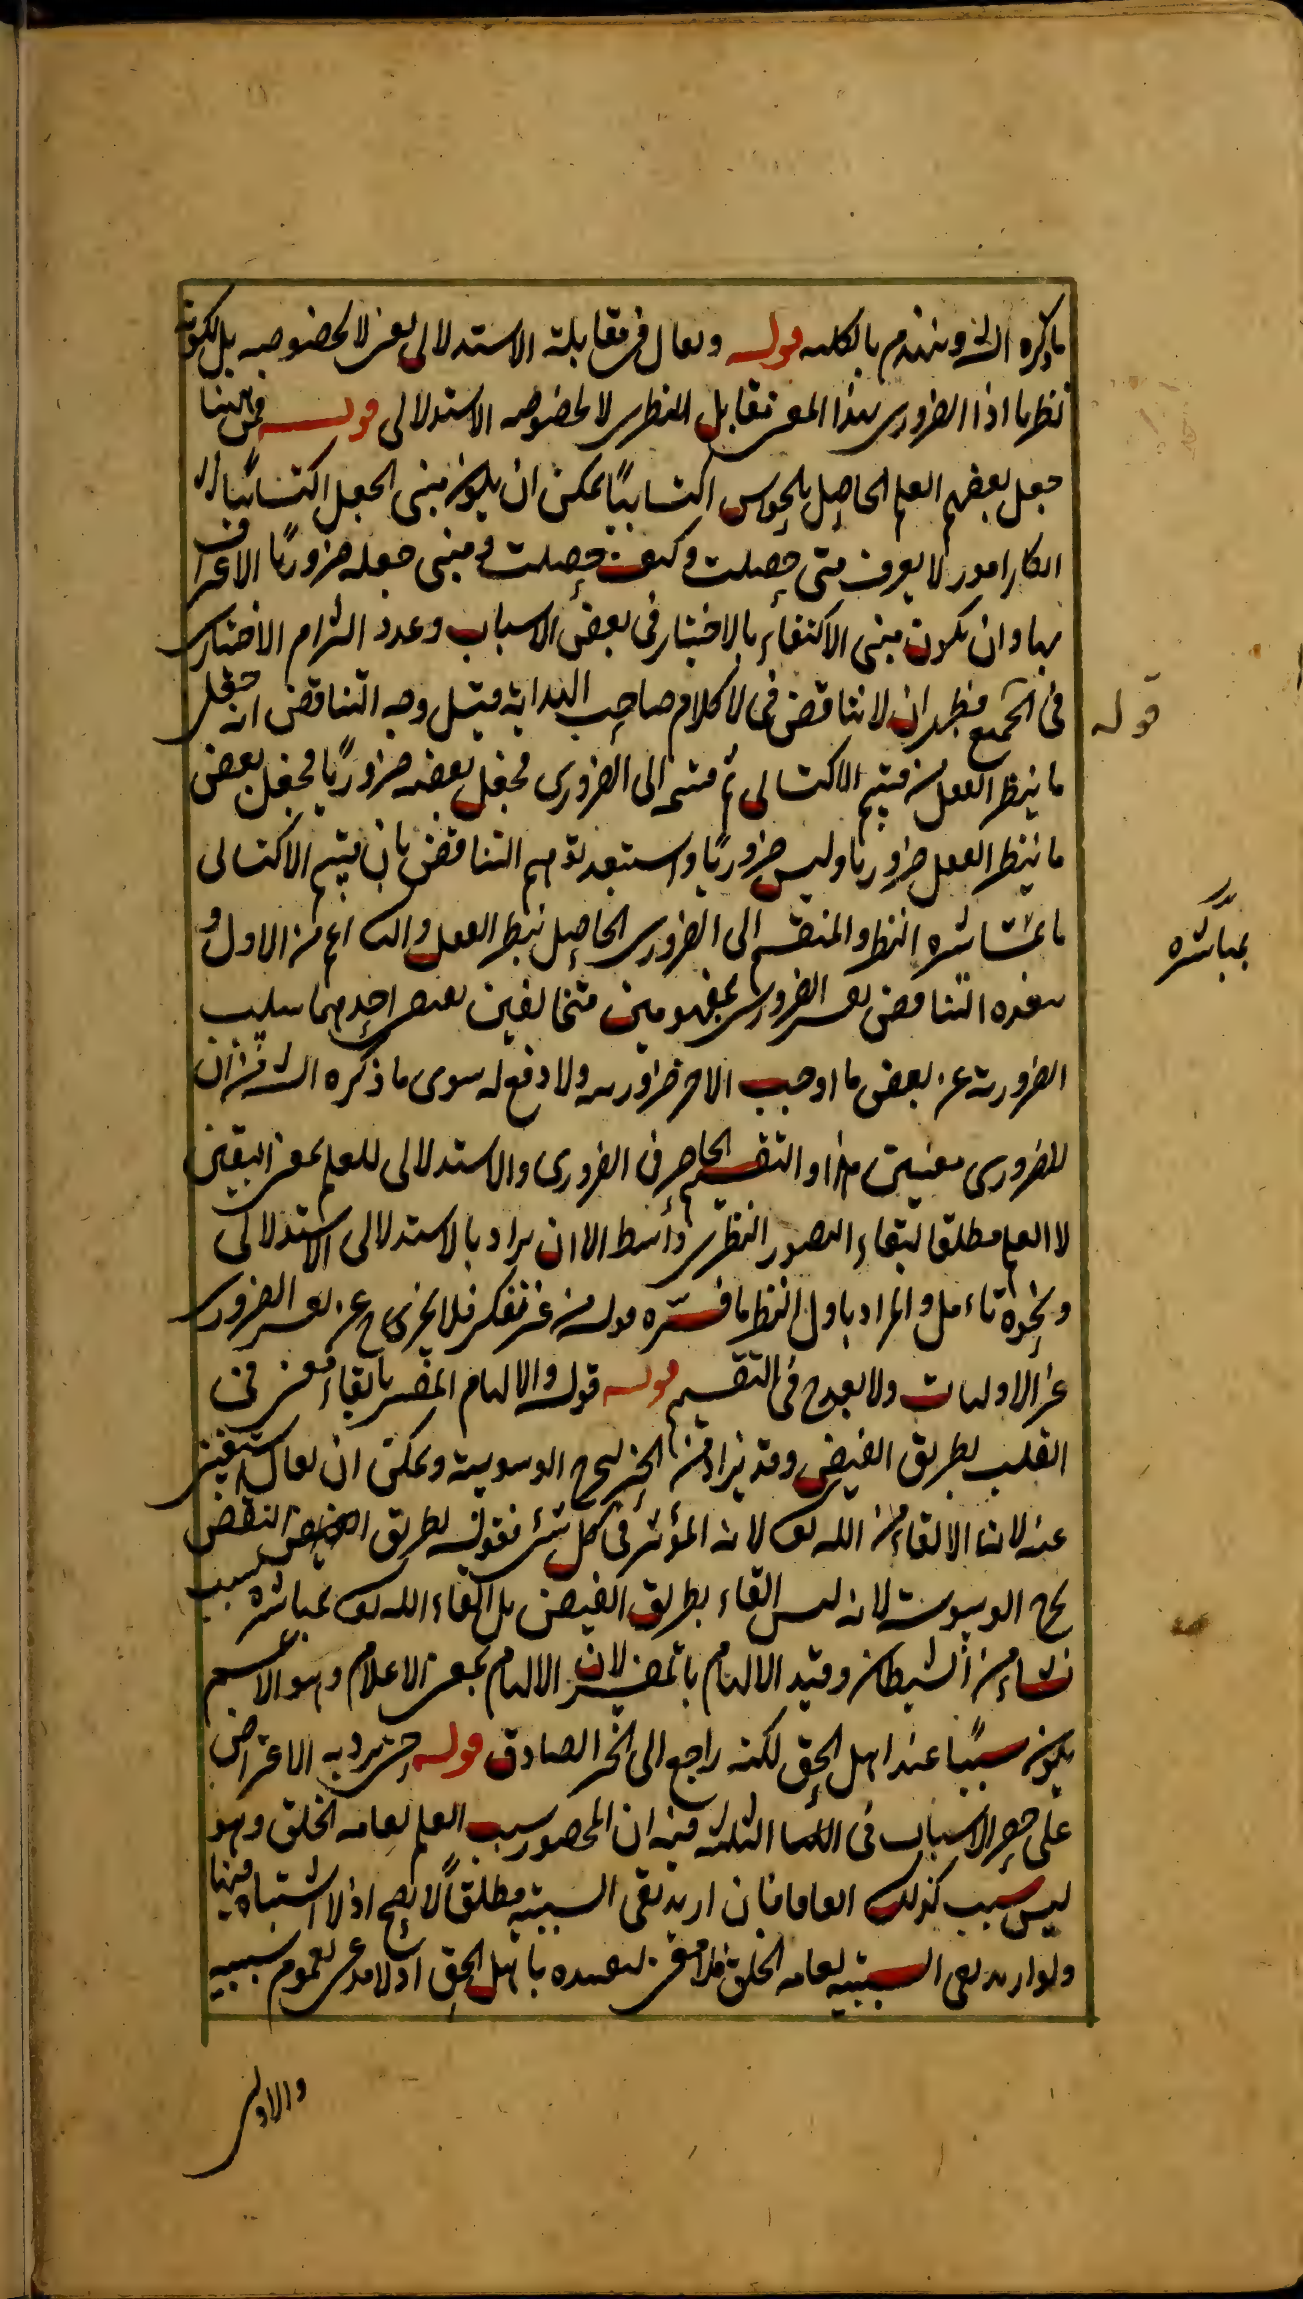 ما ذكره الش وينهدم بالكلية قوله ويقال في مقابلة الاستدلالى يعنى لا لخصوصه بل لكونه
نظريا اذا الضرورى بهذا المعنى تقابل النظرى لا لخصوص الاستدلالى قوله فمن ههنا
جعل بعضهم العلم الحاصل بالحواس اكتسابيًا يمكن ان يكون مبنى الجعل اكتسابيًا ان
امور لا يعرف متى حصلت وكيف حصلت ومبنى جعله ضروريًا الاعتراف
بها وان يكون مبنى الاكتفاء بالاختيار في بعض الاسباب وعدم التزام الاختيار
في الجميع فظهر ان لا تناقض فى كلام صاحب البداية قيل وجه التناقض انه جعل
ما ينظر العقل من قسم الاكتسابى ثم قسمه الى الضرورى فجعل بعضه ضروريًا فجعل بعض
ما ينظر العقل ضروريا وليس ضروريًا واستبعد توهم التناقض بان قسم الاكتسابى
ما بمباشرة النظر والمنقسم الى الضرورى الحاصل بنظر العقل والثانى اعم من الاول و
التناقض الضرورى بمفهومين متخالفين احدهما سلب
الضرورية عن بعض ما اوجب الاخر ضروريته ولا دفع له سوى ما ذكره الش من ان
للضرورى معنيين هذا والتقسيم الحاصر فى الضرورى والاستدلالى للعلم بمعنى اليقين
لا العلم مطلقا لبقاء التصور النظرى واسطة الا ان يراد بالاستدلالى الاستدلالى
ونحوه تأمل والمراد باول النظر ما فسره قوله من غير تفكر فلا يخرج عن الضرورى
عن الاوليات ولا يقدح فى التقسيم قوله قوله والالهام المفسر بالقاء معنى فى
القلب بطريق الفيض وقد يزاد من الخير ليخرج الوسوسة ويمكن ان يقال استغنى
عنه لان الالقاء من الله تعالى لانه المؤثر فى كل شئ فقوله بطريق الفيض
يخرج الوسوسة لانه ليس القاء بطريق الفيض بل القاء الله تعالى بمباشرة سبب
نشاء من الشيطان وقيد الالهام بالمفسر لان الالهام بمعنى الاعلام وهو الاعم
يكون سببًا عند اهل الحق لكنه راجع الى الخبر الصادق قوله حتى يرد به الاعتراض
على حصر الاسباب فى الثلثة فيه ان المحصور سبب العلم لعامة الخلق وهو
ليس بسبب كذلك فان اريد نفى السببية مطلقًا لا يصح اذ لا اشتباه فيها
ولو اريد نفى السببية لعامة الخلق فلا معنى لتقييده باهل الحق اذ لا مدعى لعموم سببيته
والاولى
قوله
بمباشرة